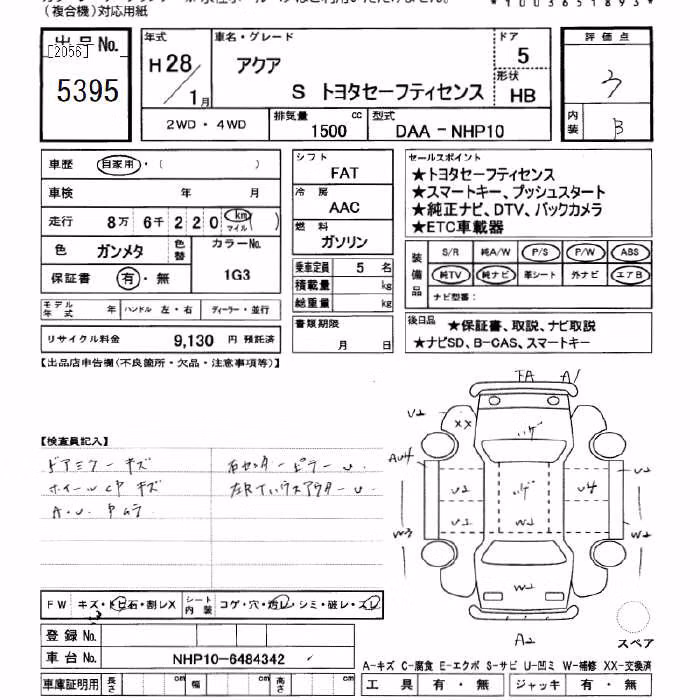 （複合機）対応用紙
*1003651893*
出品No.
[2056]
5395
年式
H28/1月
車名・グレード
アクア
S トヨタセーフティセンス
ドア
5
形状
HB
評価点
3
内装
B
2WD・4WD
排気量
1500 cc
型式
DAA-NHP10
車歴 自家用・（ ）
車検 年 月
走行 8万 6千 2 2 0 km マイル ( )
色 ガンメタ 色替 カラーNo. 1G3
保証書 有・無
モデル年式 年 ハンドル 左・右 ディーラー・並行
リサイクル料金 9,130 円 預託済
シフト
FAT
冷房
AAC
燃料
ガソリン
乗車定員 5 名
積載量 kg
総重量 kg
書類期限
月 日
セールスポイント
★トヨタセーフティセンス
★スマートキー、プッシュスタート
★純正ナビ、DTV、バックカメラ
★ETC車載器
装備品
S/R 純A/W P/S P/W ABS
純TV 純ナビ 革シート 外ナビ エアB
ナビ型番：
後日品 ★保証書、取説、ナビ取説
★ナビSD、B-CAS、スマートキー
【出品店申告欄(不良箇所・欠品・注意事項等)】
【検査員記入】
ドアミラーキズ
ホイールCPキズ
右センターピラーU
FA A1
U2
XX
AU4
U2
U2
U4
U2
W2
W3
W2
W2
A2
スペア
FW キズ・トビ石・割レX
シート内装 コゲ・穴・スレ・シミ・破レ・スレ
登録No.
車台No. NHP10-6484342
車庫証明用 長さ cm 幅 cm 高さ cm
A-キズ C-腐食 E-エクボ S-サビ U-凹ミ W-補修 XX-交換済
工具 有・無 ジャッキ 有・無